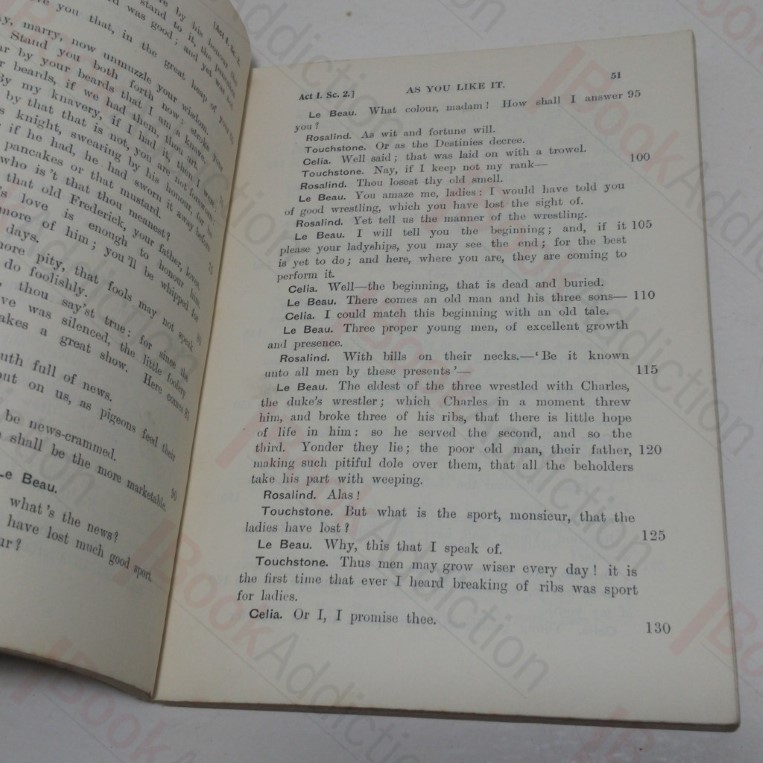 [Act I. Sc. 2.
by his honour
stand to it, the pancakes
was good; and yet was
you that, in the great heap of your
marry, now unmuzzle your wisdom.
Stand you both forth now: stroke your
by your beards that I am a knave.
beards, if we had them, thou art.
By my knavery, if I had it, then I
by that that is not, you are not forsworn
knight, swearing by his honour, for he
if he had, he had sworn it away before
pancakes or that mustard.
who is't that thou meanest?
that old Frederick, your father, loves.
love is enough to honour him.
more of him; you'll be whipped for
days.
more pity, that fools may not speak
do foolishly.
thou say'st true; for since the
was silenced, the little foolery
makes a great show. Here comes
full of news.
on us, as pigeons feed their
be news-crammed.
shall be the more marketable. 90
Le Beau.
what's the news?
have lost much good sport.
Act I. Sc. 2.] AS YOU LIKE IT. 51
Le Beau. What colour, madam! How shall I answer 95
you?
Rosalind. As wit and fortune will.
Touchstone. Or as the Destinies decree.
Celia. Well said; that was laid on with a trowel.
Touchstone. Nay, if I keep not my rank— 100
Rosalind. Thou losest thy old smell.
Le Beau. You amaze me, ladies: I would have told you
of good wrestling, which you have lost the sight of.
Rosalind. Yet tell us the manner of the wrestling.
Le Beau. I will tell you the beginning; and, if it 105
please your ladyships, you may see the end; for the best
is yet to do; and here, where you are, they are coming to
perform it.
Celia. Well—the beginning, that is dead and buried.
Le Beau. There comes an old man and his three sons— 110
Celia. I could match this beginning with an old tale.
Le Beau. Three proper young men, of excellent growth
and presence.
Rosalind. With bills on their necks.—'Be it known
unto all men by these presents'— 115
Le Beau. The eldest of the three wrestled with Charles,
the duke's wrestler; which Charles in a moment threw
him, and broke three of his ribs, that there is little hope
of life in him: so he served the second, and so the
third. Yonder they lie; the poor old man, their father, 120
making such pitiful dole over them, that all the beholders
take his part with weeping.
Rosalind. Alas!
Touchstone. But what is the sport, monsieur, that the
ladies have lost? 125
Le Beau. Why, this that I speak of.
Touchstone. Thus men may grow wiser every day! it is
the first time that ever I heard breaking of ribs was sport
for ladies.
Celia. Or I, I promise thee. 130
BookAddiction